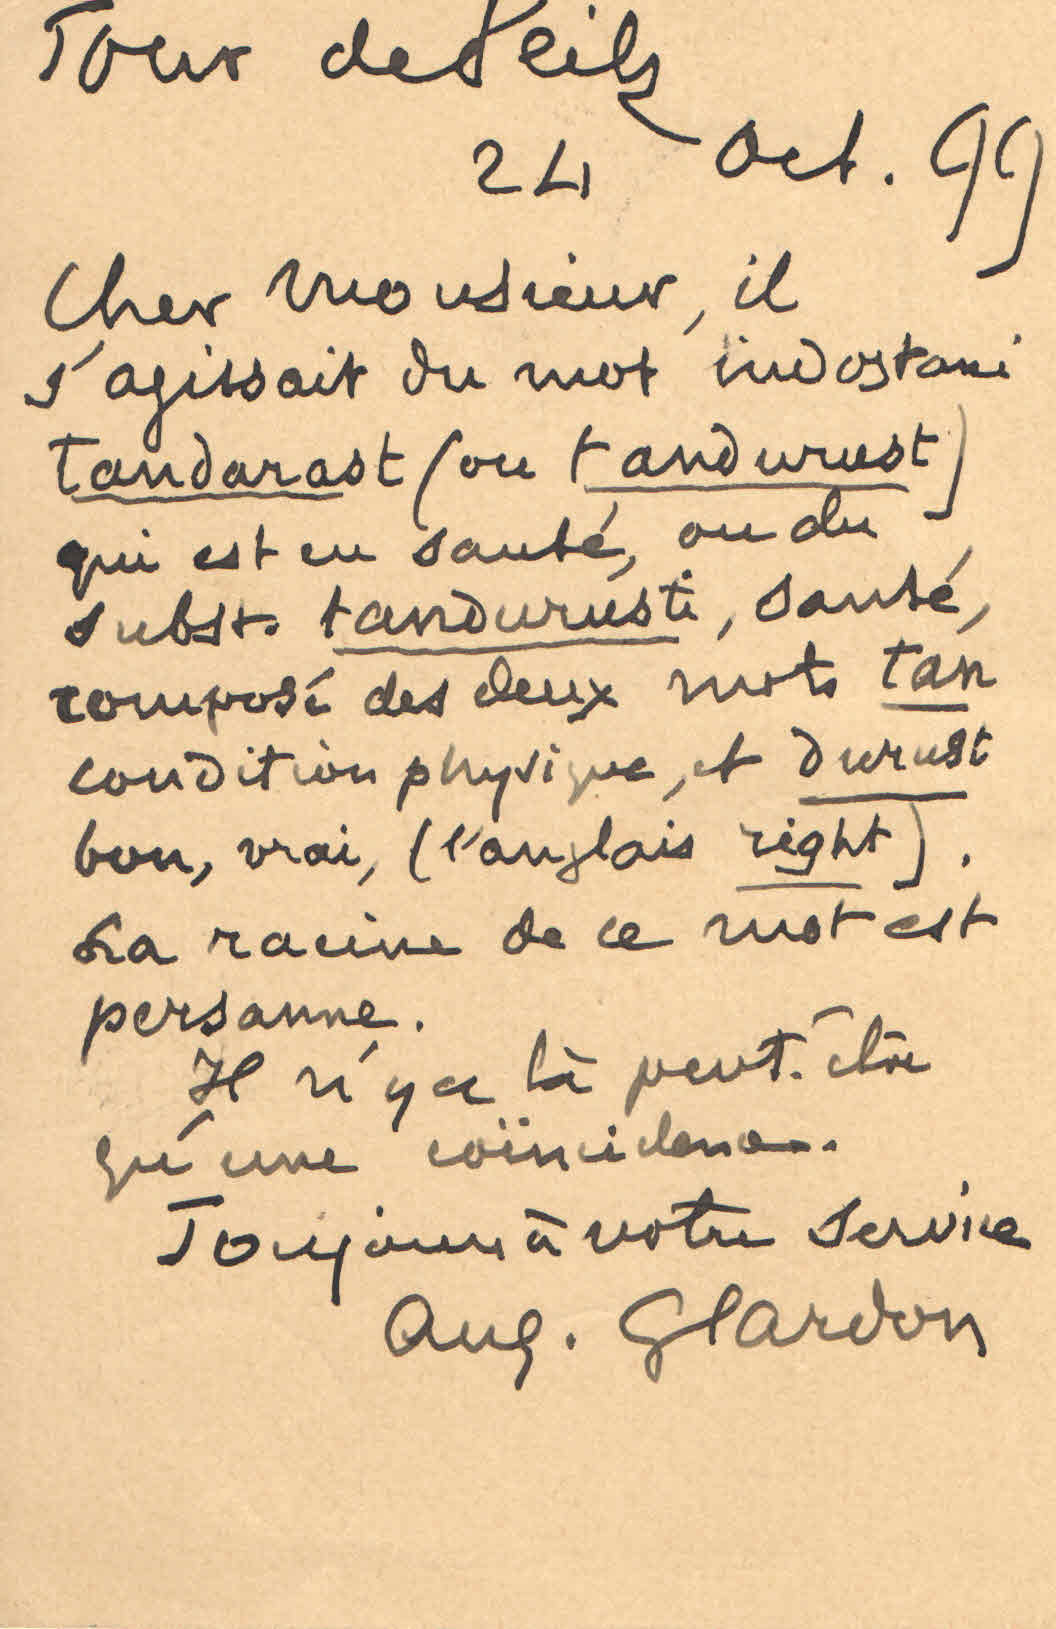 Tour de Peilz
24 Oct. 99
Cher Monsieur, il
s'agissait du mot indostani
tandarast (ou tandurust)
qui est en santé, ou du
subst. tandurusti, santé,
composé des deux mots tan
condition physique, et durust
bon, vrai, (l'anglais right).
La racine de ce mot est
persanne.
Il n'y a là peut-être
qu'une coïncidence.
Toujours à votre service
Aug. Glardon